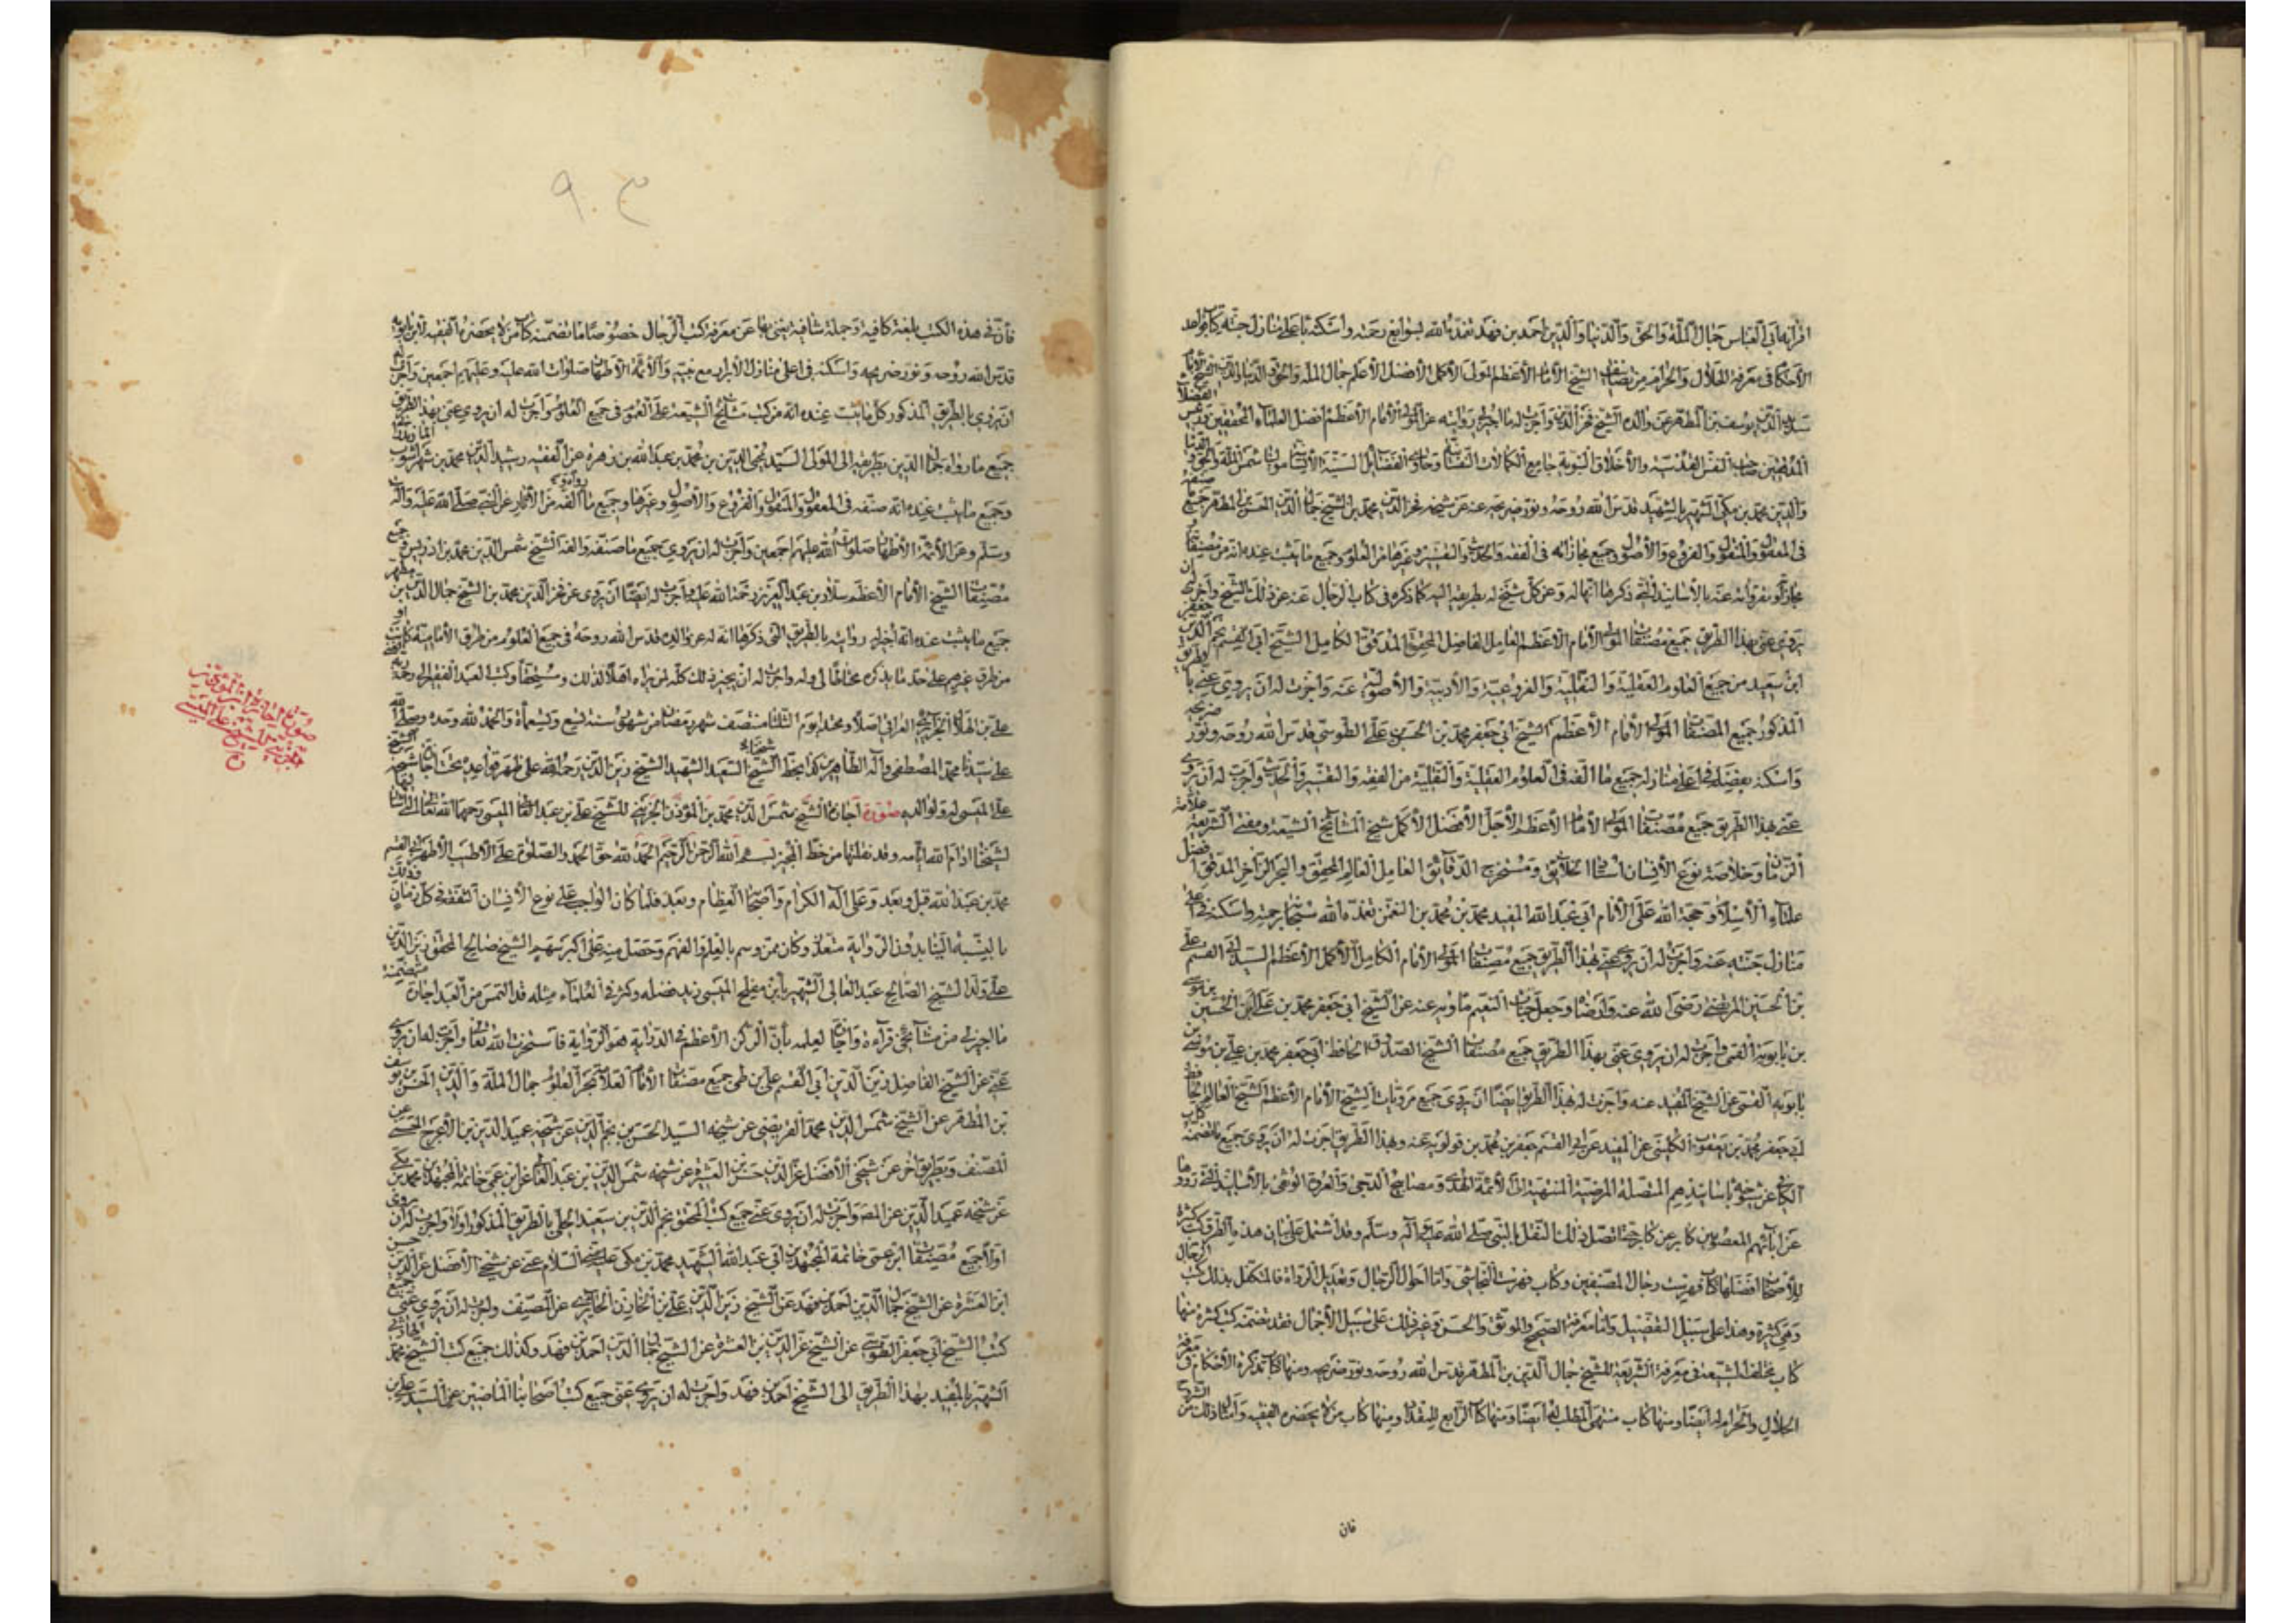 افرابه ابي العباس جمال الملة والحق والدنيا والدين احمد بن فهد تغمده الله بسوابغ رحمته واسكنه باعلى منازل جنته كتاب قواعد
الأحكام في معرفة الحلال والحرام من تصانيف الشيخ الأمام الأعظم المولى الأكمل الأفضل الأعلم جمال الملة والحق والدنيا والدين
سديد الدين يوسف بن المطهر عن والده الشيخ فخر الدين واجزت له ما اجيز لي روايته عن المولى الأمام الأعظم افضل العلماء المحققين
صاحب النفس القدسية والأخلاق النبوية جامع الكمالات النفسانية وحاوي الفضائل السنية الأنسانية مولانا شمس الملة والحق
والدين محمد بن مكي الشهير بالشهيد قدس الله روحه ونور ضريحه عنه عن شيخه فخر الدين محمد بن الشيخ جمال الدين الحسن بن المطهر جميع
في المعقول والمنقول والفروع والأصول وجميع مجازاته في الفقه والحديث والتفسير وغيرها من العلوم وجميع ما يثبت عنده انه من تصنيفاته
بالأسانيد التي ذكرها انها له وعن كل شيخ له بطريقه اليه كما ذكره في كتاب الرجال عنه عن ذلك الشيخ واجزت له ان
يروي عني بهذا الطريق جميع مصنفات المولى الأمام الأعظم العامل الفاضل المحقق المدقق الكامل الشيخ ابي القسم نجم الدين جعفر
ابن سعيد من جميع العلوم العقلية والنقلية والفروعية والأدبية والأصولية عنه واجزت له ان يروي عني بالطريق
المذكور جميع المصنفات المولى الأمام الأعظم الشيخ ابي جعفر محمد بن الحسن بن علي الطوسي قدس الله روحه ونور ضريحه
واسكنه بفضله في اعلى منازله جميع ما الفه في العلوم العقلية والنقلية من الفقه والتفسير والحديث واجزت له ان يروي
عني بهذا الطريق جميع مصنفات المولى الأمام الأعظم الأجل الأفضل الأكمل شيخ المشايخ الشيعة ومفتي الشريعة علامة
الزمان وخلاصة نوع الأنسان استاد الخلائق ومستخرج الدقائق العامل العالم المحقق والبحر الزاخر المدقق افضل
علماء الأسلام وحجة الله على الأنام ابي عبد الله المفيد محمد بن محمد بن النعمن تغمده الله سبحانه برحمته واسكنه في اعلى
منازل جنته عنه واجزت له ان يروي عني بهذا الطريق جميع مصنفات المولى الأمام الكامل الأكمل الأعظم السيد ابي القسم علي
بن الحسين المرتضى رضي الله عنه وارضاه وجعل جنات النعيم مأويه عنه عن الشيخ ابي جعفر محمد بن علي بن الحسين بن موسى
بن بابويه القمي واجزت له ان يروي عني بهذا الطريق جميع مصنفات الشيخ الصدوق الحافظ ابي جعفر محمد بن علي بن موسى بن
بابويه القمي عن الشيخ المفيد عنه واجزت له بهذا الطريق ايضا ان يروي جميع مرويات الشيخ الأمام الأعظم الشيخ العالم الحافظ
ابي جعفر محمد بن يعقوب الكليني عن المفيد عن ابي القسم جعفر بن محمد بن قولويه عنه وبهذا الطريق اجزت له ان يروي جميع ما تضمنه كتاب
الكافي عن شيوخه باسانيدهم المتصلة المرضية المنتهية الى الأئمة الهدى ومصابيح الدجى والعروة الوثقى بالأسانيد التي رووا
عن ابائهم المعصومين كابر عن كابر حتى اتصل ذلك النقل بالنبي صلى الله عليه وآله وسلم وقد اشتمل على بيان هذه الطرق كتب كثيرة
للأصحاب افضلها كتاب فهرست رجال المصنفين وكتاب فهرست النجاشي واما احوال الرجال وتعديل الرواة فالمتكفل بذلك كتب الرجال
وهي كثيرة وهذا على سبيل التفصيل واما معرفة الصحيح والموثق والحسن وغير ذلك على سبيل الأجمال فقد تضمنه كتب كثيرة منها
كتاب مختلف الشيعة في معرفة الشريعة للشيخ جمال الدين بن المطهر قدس الله روحه ونور ضريحه ومنها كتاب تذكرة الأحكام في معرفة
الحلال والحرام له ايضا ومنها كتاب منتهى المطلب له ايضا ومنها كتاب الرابع للمقداد ومنها كتاب من لا يحضره الفقيه وامثال ذلك من
فان
٩٠٣
فان في هذه الكتب بلغة كافية وجملة شافية يغني بها عن معرفة كتب الرجال خصوصا ما تضمنه كتاب من لا يحضره الفقيه لابن بابويه
قدس الله روحه ونور ضريحه واسكنه في اعلى منازل الأبرار مع نبيه والأئمة الأطهار صلوات الله عليه وعليهم اجمعين واجزت له
ان يروي بالطريق المذكور كل ما يثبت عنده انه من كتب مشايخ الشيعة على العموم في جميع العلوم واجزت له ان يروي عني بهذا الطريق
جميع ما رواه جمال الدين بطريقه الى المولى السيد محيي الدين بن محمد بن عبد الله بن زهره عن الفقيه رشيد الدين محمد بن شهراشوب المازندراني
وجميع ما يثبت عنده انه صنفه في المعقول والمنقول والفروع والأصول وغيرها وجميع ما الفه من الآثار عن النبي صلى الله عليه وآله
وسلم وعن الأئمة الأطهار صلوات الله عليهم اجمعين واجزت له ان يروي جميع ما صنفه والفه الشيخ شمس الدين محمد بن ادريس وجميع
مصنفات الشيخ الأمام الأعظم سلار بن عبد العزيز رحمنا الله عليه واجزت له ايضا ان يروي عن فخر الدين محمد بن الشيخ جمال الدين بن مطهر
جميع ما يثبت عنده انه اجيز له روايته بالطريق التي ذكرها انه له عن والده قدس الله روحه في جميع العلوم من طرق الأمامية كانت او
من طرق غيرهم على حد ما يذكره محتاطا لي وله واجزت له ان يجيز ذلك كله لمن يراه اهلا لذلك ومستحقا وكتب العبد الفقير الى رحمة ربه
علي بن هلال الجزائري العراقي اصلا ومحتدا يوم الثلثا منتصف شهر رمضان من شهور سنة تسع وتسعمأة والحمد لله وحده وصلى الله
على سيدنا محمد المصطفى وآله الطاهرين كذا بخط شيخنا الشيخ السعيد الشهيد الشيخ زين الدين رحمه الله على ظهر قواعده
علي الميسي له ولوالده صورة اجازة الشيخ شمس الدين محمد بن المؤذن الجزيني للشيخ علي بن عبد العالي الميسي رحمهما الله تعالى
لشيخنا ادام الله ايامه وقد نقلتها من خط المجيز بسم الله الرحمن الرحيم الحمد لله حق الحمد والصلوة على الأطيب الأطهر ابي القسم
محمد بن عبد الله قبل وبعد وعلى آله الكرام واصحابه العظام وبعد فلما كان الواجب على نوع الأنسان التفقه في كل زمان
بالنسبة الينا بدون الرواية متعذر وكان ممن وسم بالعلم والفهم وحصل منه على اكبر سهم الشيخ صالح المحقق زين الدين
علي ولد الشيخ الصالح عبد العالي الشهير بابن مفلح الميسي زيد فضله وكثر في العلماء مثله قد التمس من العبد اجازة متضمنة
ما اجيز لي من مشايخي قراءة واجازة لعلمه بأن الركن الأعظم في الدراية هو الرواية فاستخرت الله تعالى واجزت له ان يروي
عني عن الشيخ الفاضل زين الدين ابي القسم علي بن طي جميع مصنفات الأمام العلامة بحر العلوم جمال الملة والدين الحسن بن يوسف
بن المطهر عن الشيخ شمس الدين محمد العريضي عن شيخه السيد الحسن بن نجم الدين عن شيخه عميد الدين بن الأعرج الحسيني عن
المصنف وبطريق اخر عن شيخي الأفضل عز الدين حسن بن العشرة عن شيخه شمس الدين بن عبد العالي عن ابن عمي خاتمة المجتهدين محمد بن مكي
عن شيخه عميد الدين عن المصنف واجزت له ان يروي عني جميع كتب المحقق نجم الدين بن سعيد الحلي بالطريق المذكور اولا واجزت له ان يروي
اولا جميع مصنفات ابن عمي خاتمة المجتهدين ابي عبد الله الشهيد محمد بن مكي عليه السلام عني عن شيخي الأفضل عز الدين حسن
ابن العشرة عن الشيخ جمال الدين احمد بن فهد عن الشيخ زين الدين علي بن الخازن الحائري عن المصنف واجزت له ان يروي عني جميع
كتب الشيخ ابي جعفر الطوسي عن الشيخ عز الدين بن العشرة عن الشيخ جمال الدين احمد بن فهد وكذلك جميع كتب الشيخ محمد
الشهير بالمفيد بهذا الطريق الى الشيخ احمد بن فهد واجزت له ان يروي عني جميع كتب اصحابنا الماضين عن السيد علي بن